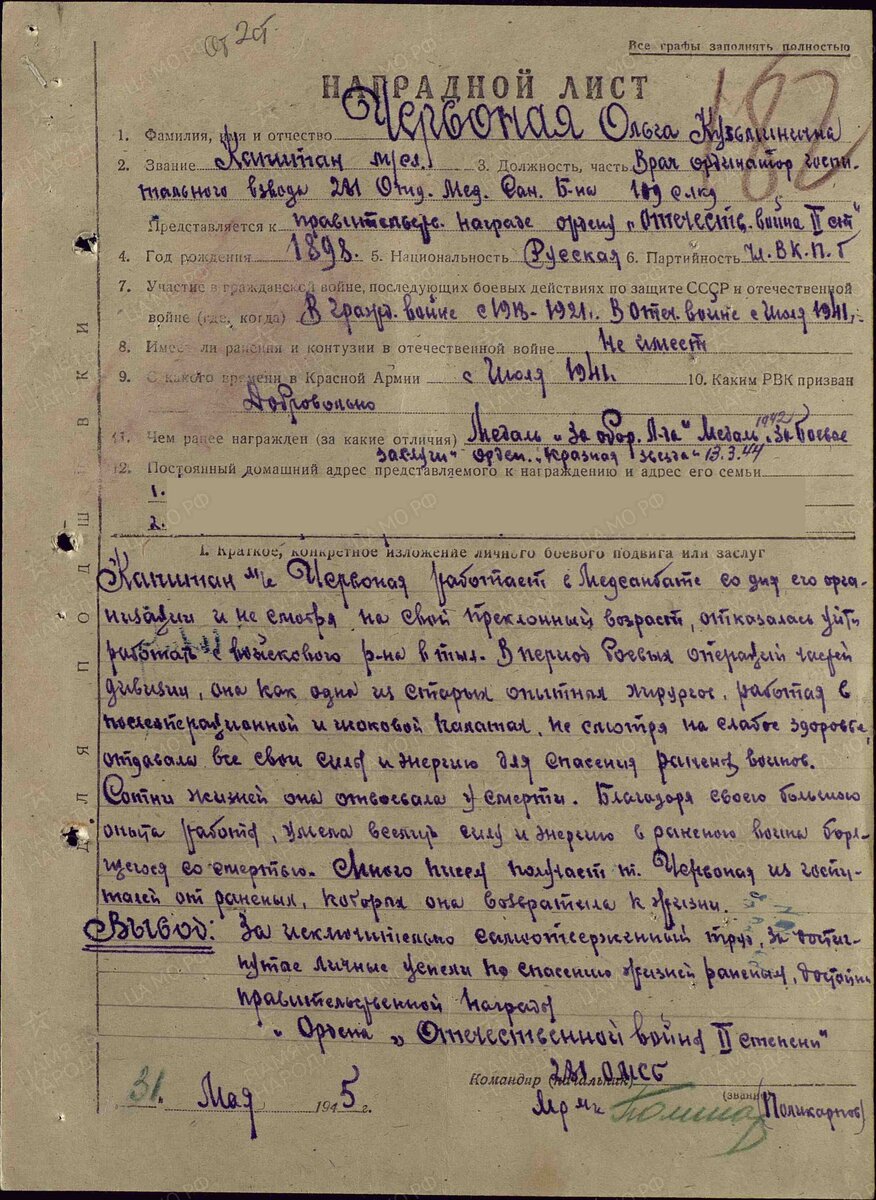 от 2 ст.
Все графы заполнять полностью
182
НАГРАДНОЙ ЛИСТ
1. Фамилия, имя и отчество Червоная Ольга Кузьминична
2. Звание Капитан м/сл. 3. Должность, часть Врач ординатор госпи-
тального взвода 281 Отд. Мед. Сан. Б-на 109 с лкд
Представляется к правительств. награде ордену „Отечеств. война II ст"
4. Год рождения 1898. 5. Национальность Русская 6. Партийность Чл. В К. П. б
7. Участие в гражданской войне, последующих боевых действиях по защите СССР и отечественной
войне (где, когда) В гражд. войне с 1918 - 1921г. В Отеч. войне с Июля 1941г.
8. Имеет ли ранения и контузии в отечественной войне Не имеет
9. С какого времени в Красной Армии с Июля 1941. 10. Каким РВК призван
Добровольно
11. Чем ранее награжден (за какие отличия) Медаль „За обор. Л-да" Медаль 1942г „За боевые
заслуги" Орден „Красная звезда" 13.3.44
12. Постоянный домашний адрес представляемого к награждению и адрес его семьи
1.
2.
ДЛЯ ПОДШИВКИ
I. Краткое, конкретное изложение личного боевого подвига или заслуг
Капитан м/с Червоная работает в Медсанбате со дня его орга-
низации и не смотря на свой преклонный возраст, отказалась уйти
работать с войскового р-на в тыл. В период боевых операций частей
дивизии, она как одна из старых опытных хирургов, работая в
послеоперационной и шоковой палатах, не смотря на слабое здоровье,
отдавала все свои силы и энергию для спасения раненых воинов.
Сотни жизней она отвоевала у смерти. Благодоря своего большого
опыта работы, умела вселить силу и энергию в раненого воина боря-
щегося со смертью. Много писем получает т. Червоная из госпи-
талей от раненых, которых она возвратила к жизни.
Вывод: За исключительно самоотверженный труд, за достиг-
нутые личные успехи по спасению жизней раненых, достойна
правительственной награды
„Ордена „Отечественной войны II степени"
31 Мая 1945 г.
Командир (начальник) 281 ОМСБ
(звание)
М-р м/с (Поликарпов)